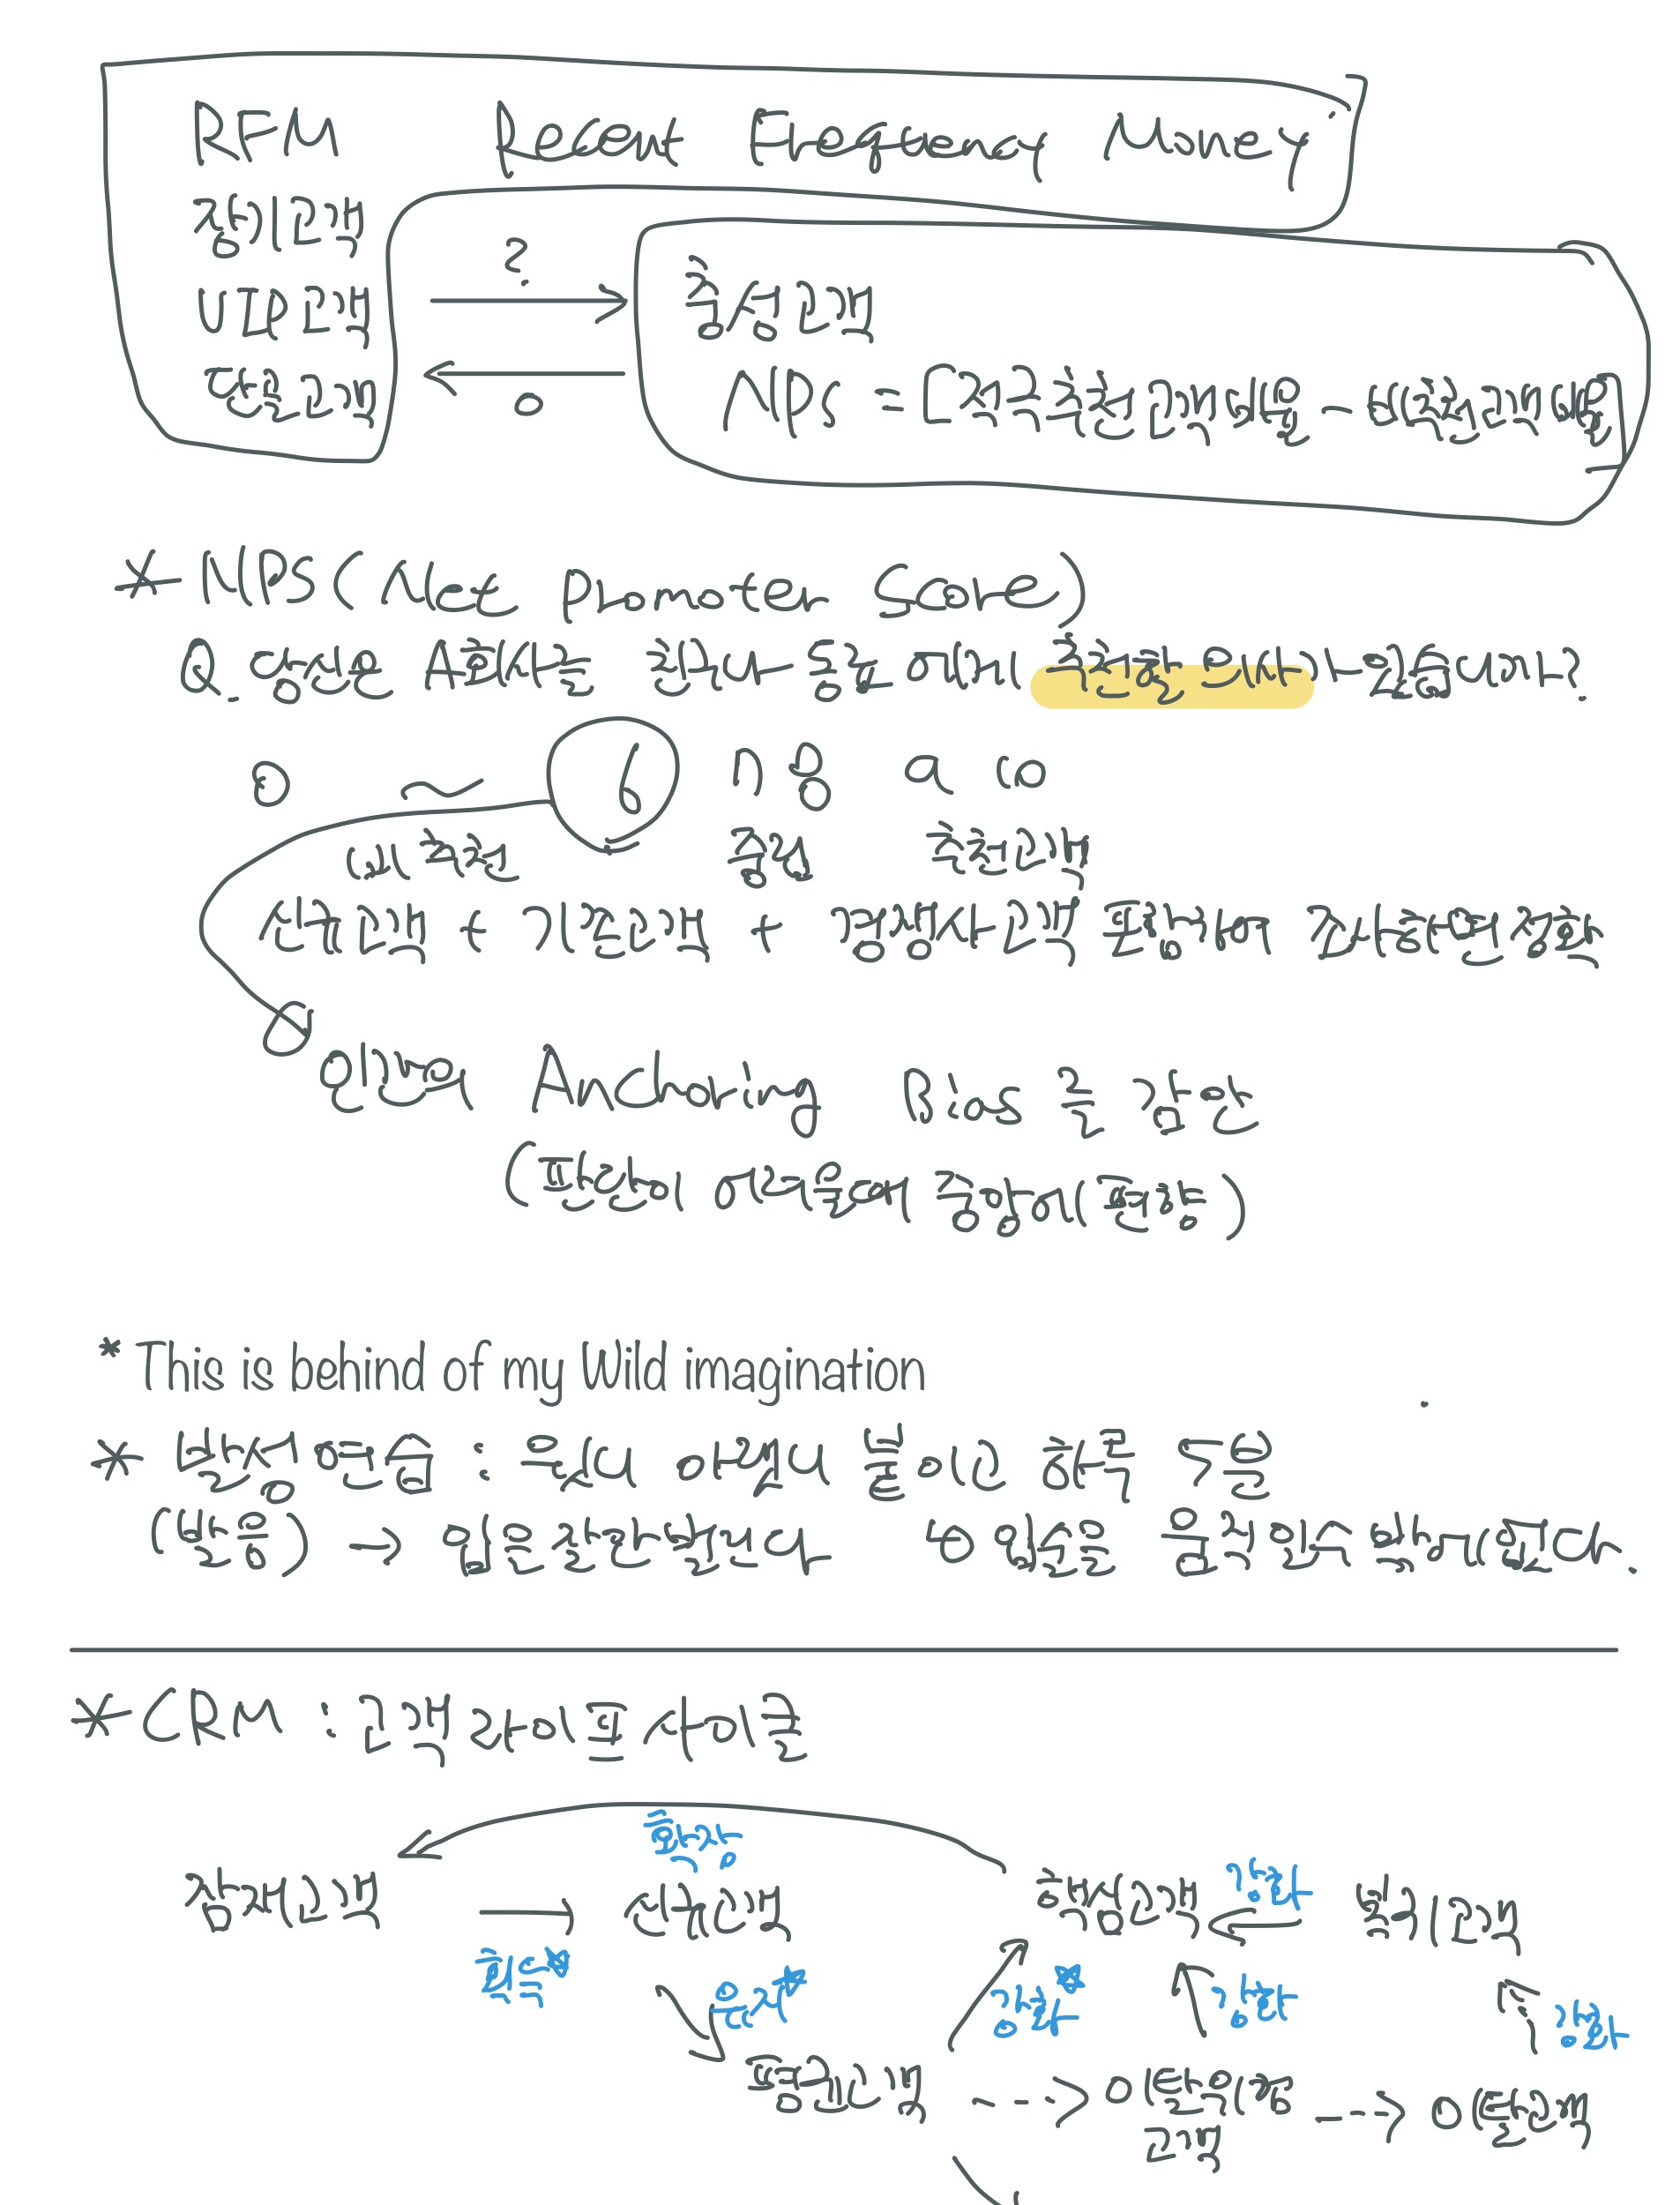 RFM Recent Frequency Money
장기고객
VIP고객 ? 충성고객
단골고객 NPS = [적극추천고객비율 - 비추천고객비율]
* NPS (Net Promoter Score)
Q. 당신은 A회사를 친구나 동료에게 추천할 의사가 있습니까?
0 ~ 6 7 8 9 10
비추천 중립 추천고객
신규고객 + 기존고객 + 경쟁사고객 포함해서
이는 Anchoring Bias를 감안
(판단의 어려움에 중앙에 편향)
* This is behind of my Wild imagination
* 발성연습 : 우リ
(발음) → 입은
* CRM : 고객 라이프 사이클
확장
잠재고객 신규고객 핵심고객 강화 복귀고객
획득 유지 강화 강화 강화
평균고객 이탈유의 이탈고객
고객